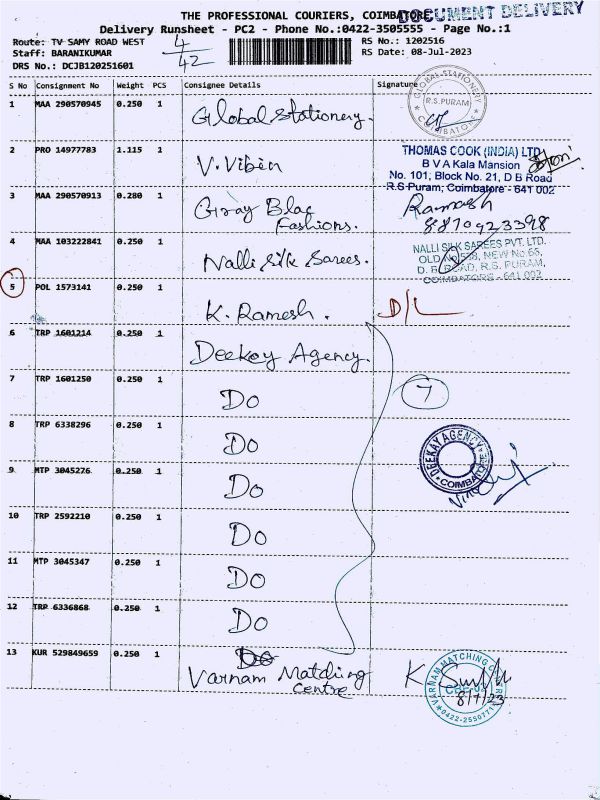 DOCUMENT DELIVERY
THE PROFESSIONAL COURIERS, COIMBATORE
Delivery Runsheet - PC2 - Phone No.:0422-3505555 - Page No.:1
Route: TV SAMY ROAD WEST 4/42 RS No.: 1202516
Staff: BARANIKUMAR RS Date: 08-Jul-2023
DRS No.: DCJB120251601
S No Consignment No Weight PCS Consignee Details Signature
1 MAA 290570945 0.250 1 Global Stationery. GLOBAL STATIONERY R.S.PURAM COIMBATORE
2 PRO 14977783 1.115 1 V. Vibin
THOMAS COOK (INDIA) LTD
B V A Kala Mansion
No. 101, Block No. 21, D B Road
R.S Puram, Coimbatore - 641 002
3 MAA 290570913 0.280 1 Gray Blaq Fashions. Ramesh
8870923398
4 MAA 103222841 0.250 1 Nalli Silk Sarees.
NALLI SILK SAREES PVT. LTD.
OLD No.538, NEW No.66,
D. B. ROAD, R.S. PURAM,
COIMBATORE - 641 002
5 POL 1573141 0.250 1 K. Ramesh. D/L
6 TRP 1601214 0.250 1 Deekay Agency.
7 TRP 1601250 0.250 1 Do 7
8 TRP 6338296 0.250 1 Do
DEEKAY AGENCY COIMBATORE
9 MTP 3045276 0.250 1 Do
10 TRP 2592210 0.250 1 Do
11 MTP 3045347 0.250 1 Do
12 TRP 6336868 0.250 1 Do
13 KUR 529849659 0.250 1 Do
Varnam Matching Centre
K
VARNAM MATCHING
8/7/23